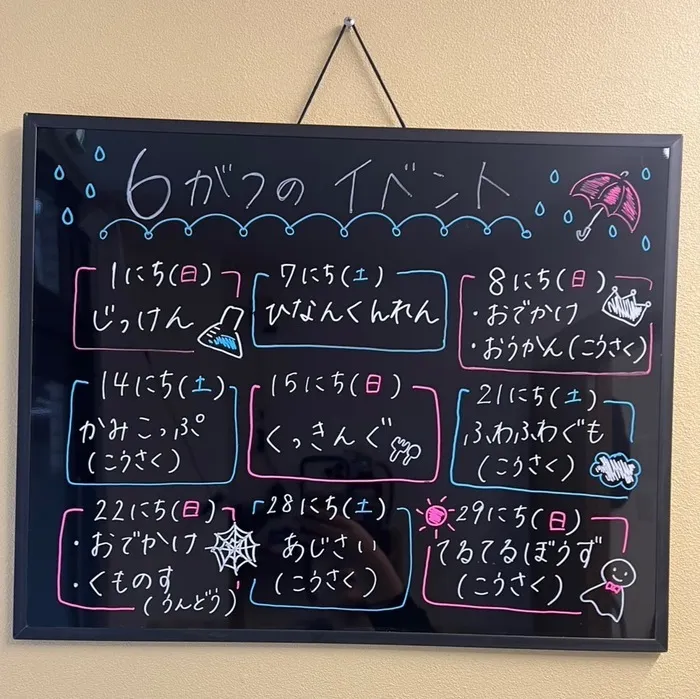 6がつのイベント
1にち(日)
じっけん
7にち(土)
ひなんくんれん
8にち(日)
・おでかけ
・おうかん(こうさく)
14にち(土)
かみこっぷ
(こうさく)
15にち(日)
くっきんぐ
21にち(土)
ふわふわぐも
(こうさく)
22にち(日)
・おでかけ
・くものす
(うんどう)
28にち(土)
あじさい
(こうさく)
29にち(日)
てるてるぼうず
(こうさく)